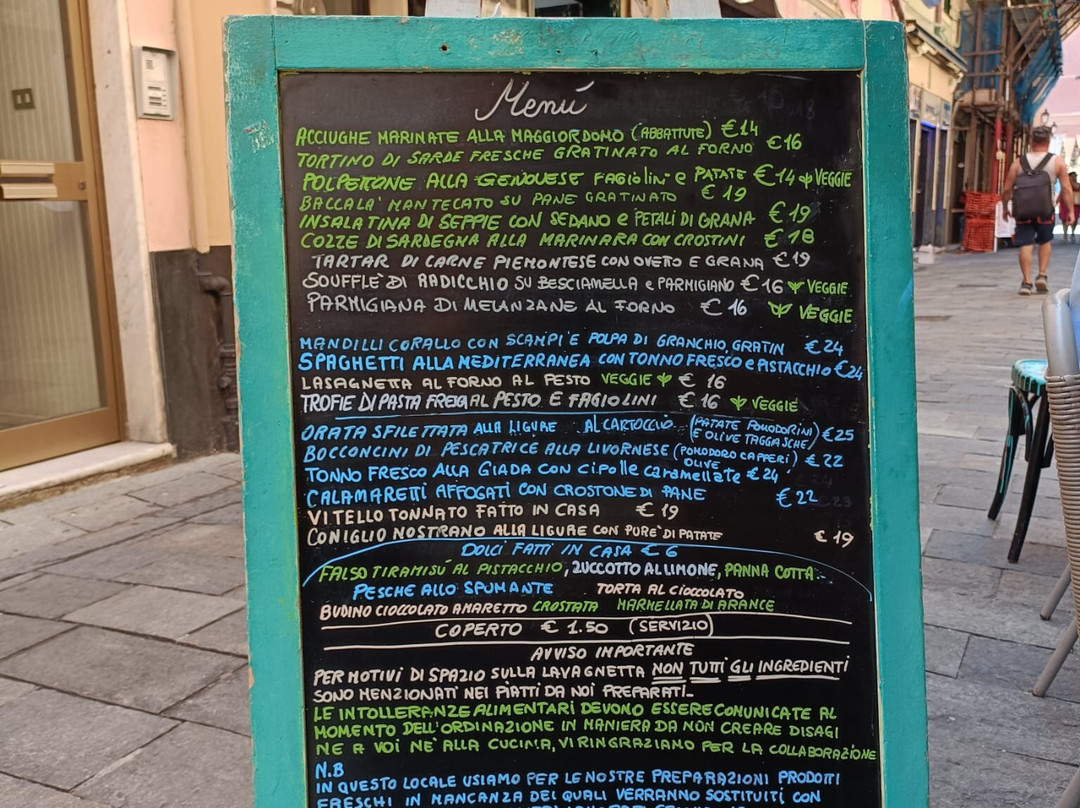 Menú
ACCIUGHE MARINATE ALLA MAGGIORDOMO (ABBATTUTE) €14
TORTINO DI SARDE FRESCHE GRATINATO AL FORNO €16
POLPETTONE ALLA GENOVESE FAGIOLINI e PATATE €14 VEGGIE
BACCALA' MANTECATO SU PANE GRATINATO €19
INSALATINA DI SEPPIE CON SEDANO e PETALI DI GRANA €19
COZZE DI SARDEGNA ALLA MARINARA CON CROSTINI €18
TARTAR DI CARNE PIEMONTESE CON OVETO E GRANA €19
SOUFFLE' DI RADICCHIO SU BESCIAMELLA e PARMIGIANO €16 VEGGIE
PARMIGIANA DI MELANZANE AL FORNO €16 VEGGIE
MANDILLI CORALLO CON SCAMPI E POLPA DI GRANCHIO, GRATIN €24
SPAGHETTI ALLA MEDITERRANEA CON TONNO FRESCO e PISTACCHIO €24
LASAGNETTA AL FORNO AL PESTO VEGGIE €16
TROFIE DI PASTA FRESCA AL PESTO E FAGIOLINI €16 VEGGIE
ORATA SFILETTATA ALLA LIGURE AL CARTOCCIO (PATATE POMODORINI E OLIVE TAGGIASCHE) €25
BOCCONCINI DI PESCATRICE ALLA LIVORNESE (POMODORO CAPPERI OLIVE €22
TONNO FRESCO ALLA GIADA CON cipolle caramellate €24
CALAMARETTI AFFOGATI CON CROSTONE DI PANE €22
VITELLO TONNATO FATTO IN CASA €19
CONIGLIO NOSTRANO ALLA LIGURE CON PURE' DI PATATE €19
DOLCI FATTI IN CASA €6
FALSO TIRAMISU' AL PISTACCHIO, ZUCCOTTO AL LIMONE, PANNA COTTA
PESCHE ALLO SPUMANTE TORTA AL CIOCCOLATO
BUDINO CIOCCOLATO AMARETTO CROSTATA MARMELLATA DI ARANCE
COPERTO €1.50 (SERVIZIO)
AVVISO IMPORTANTE
PER MOTIVI DI SPAZIO SULLA LAVAGNETTA NON TUTTI GLI INGREDIENTI
SONO MENZIONATI NEI PIATTI DA NOI PREPARATI_
LE INTOLLERANZE ALIMENTARI DEVONO ESSERE COMUNICATE AL
MOMENTO DELL'ORDINAZIONE IN MANIERA DA NON CREARE DISAGI
NE A VOI NE' ALLA CUCINA, VI RINGRAZIAMO PER LA COLLABORAZIONE
N.B
IN QUESTO LOCALE USIAMO PER LE NOSTRE PREPARAZIONI PRODOTTI
FRESCHI IN MANCANZA DEI QUALI VERRANNO SOSTITUITI CON